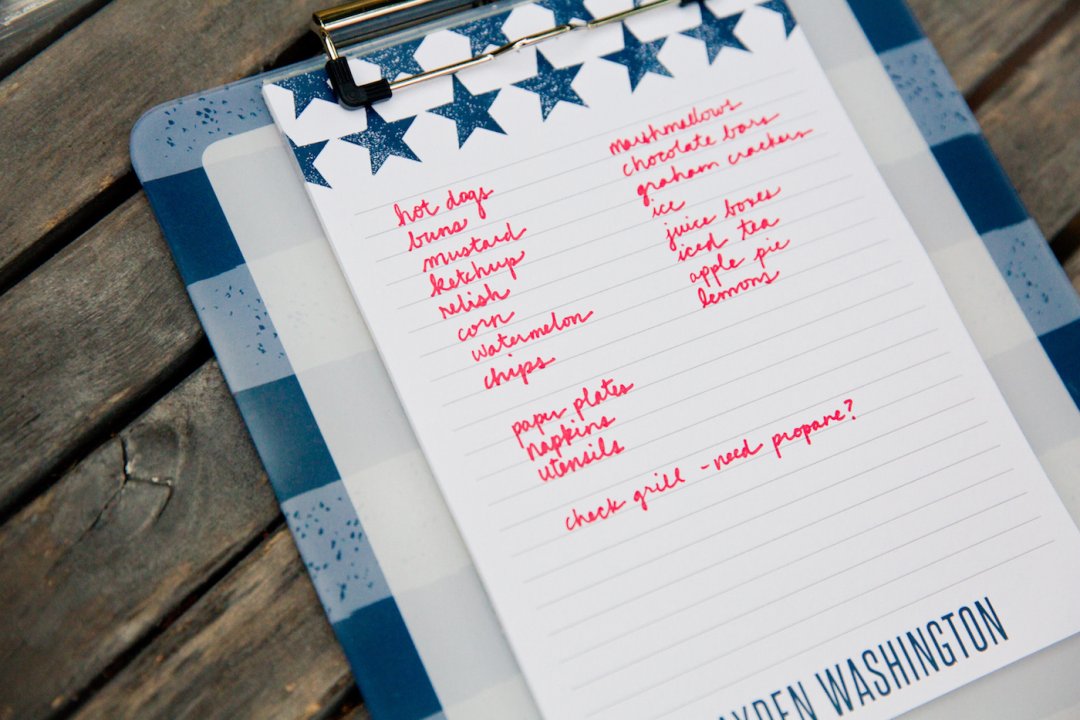 hot dogs
buns
mustard
ketchup
relish
corn
watermelon
chips
paper plates
napkins
utensils
marshmellows
chocolate bars
graham crackers
ice
juice boxes
iced tea
apple pie
lemons
check grill - need propane?
WASHINGTON